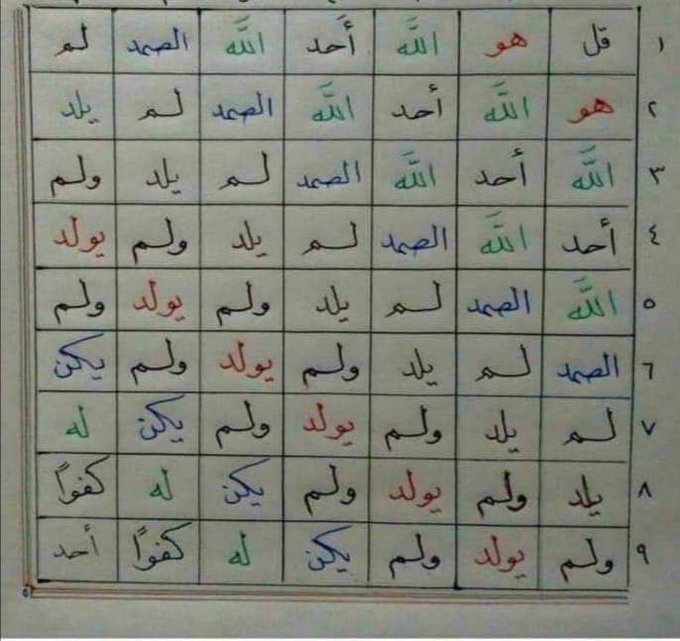 ١ قل هو الله أَحد الله الصمد لم
٢ هو الله أحد الله الصمد لم يلد
٣ الله أحد الله الصمد لم يلد ولم
٤ أحد الله الصمد لم يلد ولم يولد
٥ الله الصمد لم يلد ولم يولد ولم
٦ الصمد لم يلد ولم يولد ولم يكن
٧ لم يلد ولم يولد ولم يكن له
٨ يلد ولم يولد ولم يكن له كفواً
٩ ولم يولد ولم يكن له كفواً أحد